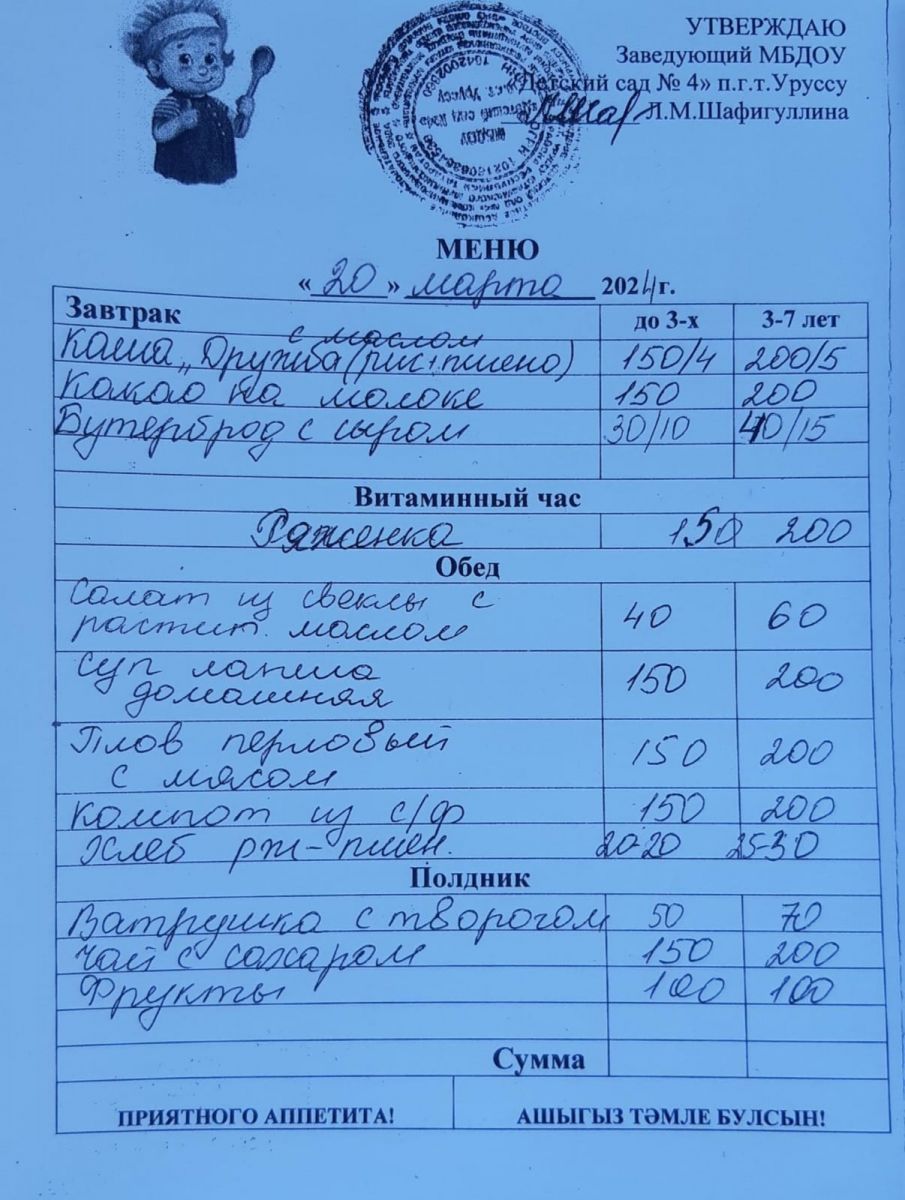 УТВЕРЖДАЮ
Заведующий МБДОУ
«Детский сад № 4» п.г.т.Уруссу
Л.М.Шафигуллина
МЕНЮ
«20» марта 2024г.
Завтрак до 3-х 3-7 лет
с маслом
Каша „Дружба (рис+пшено) 150/4 200/5
Какао на молоке 150 200
Бутерброд с сыром 30/10 40/15
Витаминный час
Ряженка 150 200
Обед
Салат из свеклы с
растит. маслом 40 60
Суп лапша
домашняя 150 200
Плов перловый
с мясом 150 200
Компот из с/ф 150 200
Хлеб рж-пшен. 20-20 25-30
Полдник
Ватрушка с творогом 50 70
Чай с сахаром 150 200
Фрукты 100 100
Сумма
ПРИЯТНОГО АППЕТИТА! АШЫГЫЗ ТӘМЛЕ БУЛСЫН!